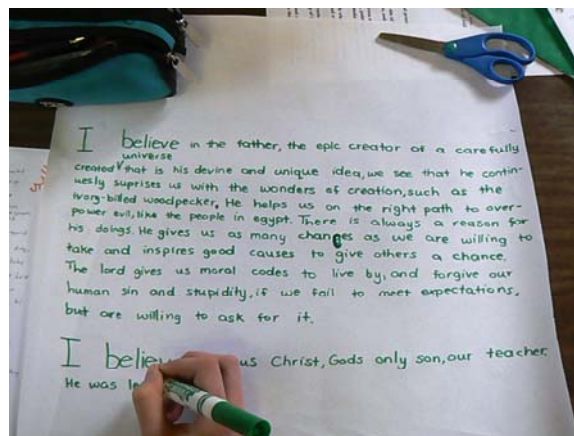 I believe in the father, the epic creator of a carefully
universe
created that is his devine and unique idea, we see that he contin-
uesly suprises us with the wonders of creation, such as the
ivory-billed woodpecker. He helps us on the right path to over-
power evil, like the people in egypt. There is always a reason for
his doings. He gives us as many changes as we are willing to
take and inspires good causes to give others a chance.
The lord gives us moral codes to live by, and forgive our
human sin and stupidity, if we fail to meet expectations,
but are willing to ask for it.
I believ us Christ, Gods only son, our teacher.
He was